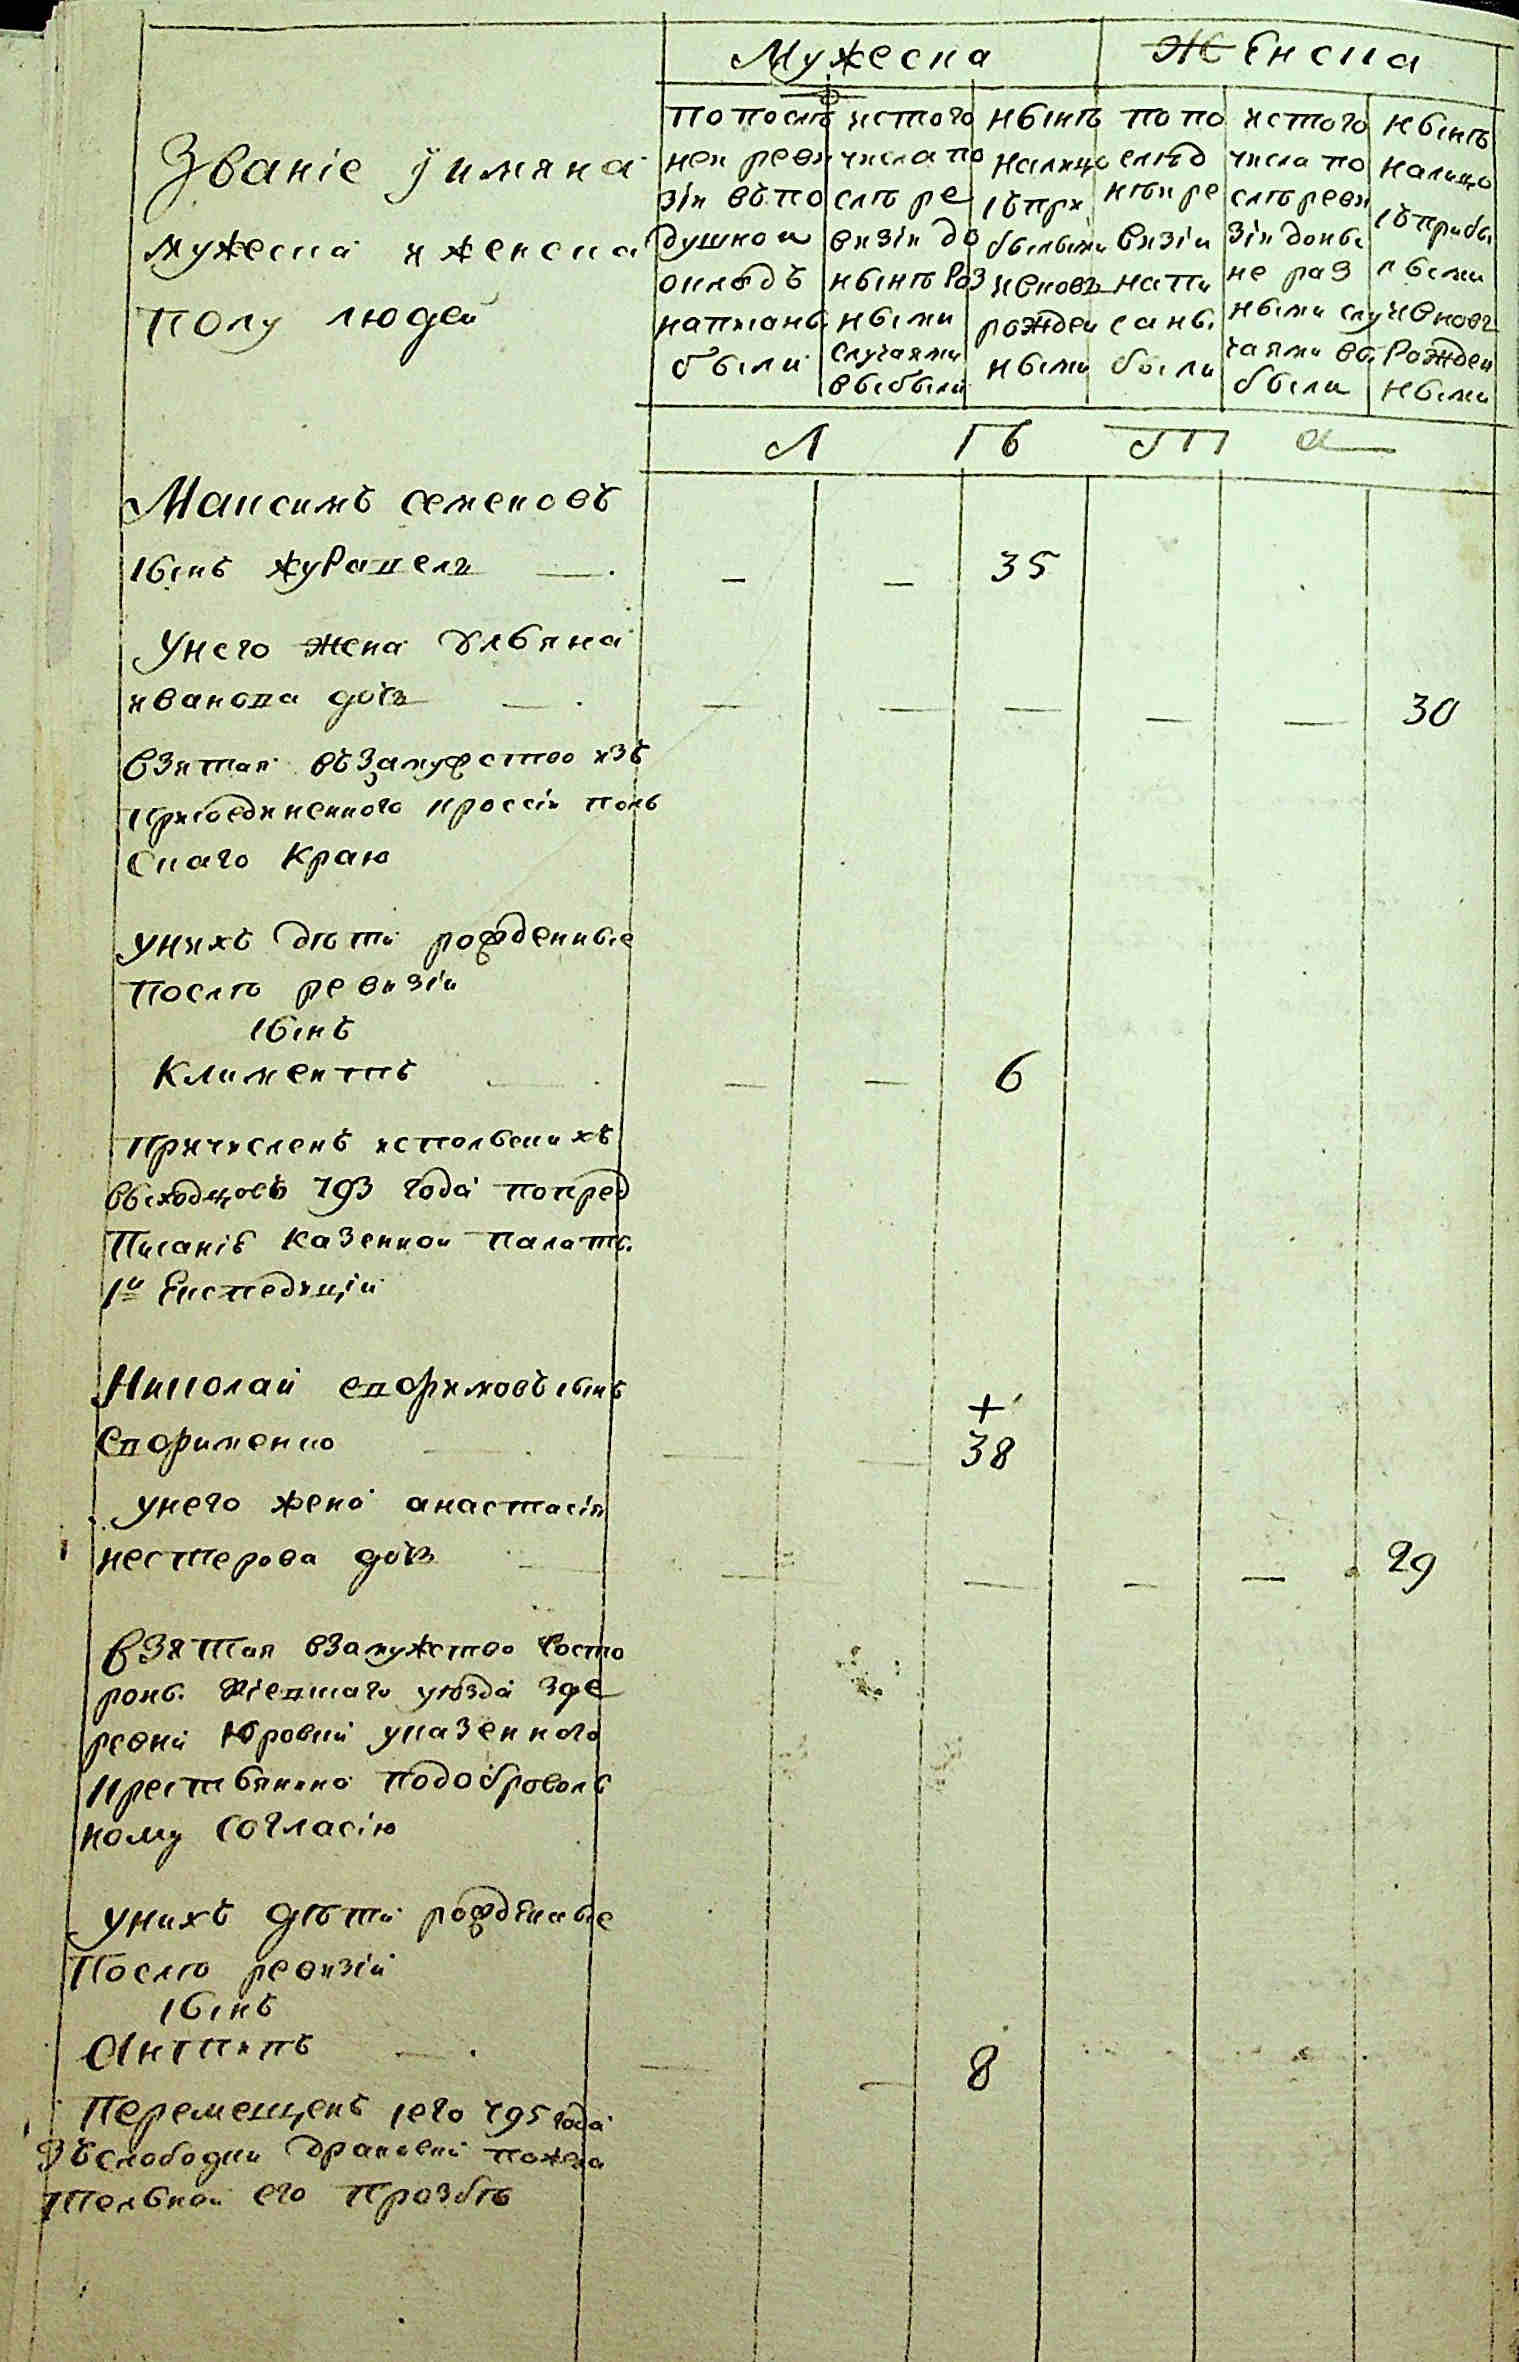 Мужеска
Женска
Званіе ӱимяна
мужеска иженска
полу людей
попослѣ
ней реви
зіи въпо
душном
окладѣ
написаны
были
истого
числа по
слѣ ре
визіи до
нынѣ раз
ными
случаями
выбыли
нынѣ
налицо
съпри
былыми
иеновь
рожден
ными
попо
слѣд
нѣи ре
визіи
напи
саны
были
истого
числа по
слѣ реви
зіи доны
не раз
ными слу
чаями вы
были
нынѣ
налицо
съприбы
лыми
иеновь
рожден
ными
Л ѣ т а
Максимъ семеновъ
сынъ журавель — 35
Унего жена Ульяна
иванова дочь — 30
взятая въЗамужство изъ
присоединенного кроссіи поль
скаго краю
унихъ дѣти рожденные
послѣ ревизіи
сынъ
Климентъ — 6
причисленъ испольскихъ
выходцовъ 793 года попред
писанію казенной палаты
1й Експедиціи
Николай евфимовъ сынъ
+
евфименко — 38
унего жена анастасія
нестерова дочь — 29
взятая взамужство состо
роны Кіевскаго уѣзда зде
ревни Юровки указенного
крестьянина подоброволь
ному согласію
унихъ дѣти рожденные
послѣ ревизіи
сынъ
Антипъ — 8
перемещенъ сего 795 года
Зъслободки драновки пожела
тельной его прозбѣ